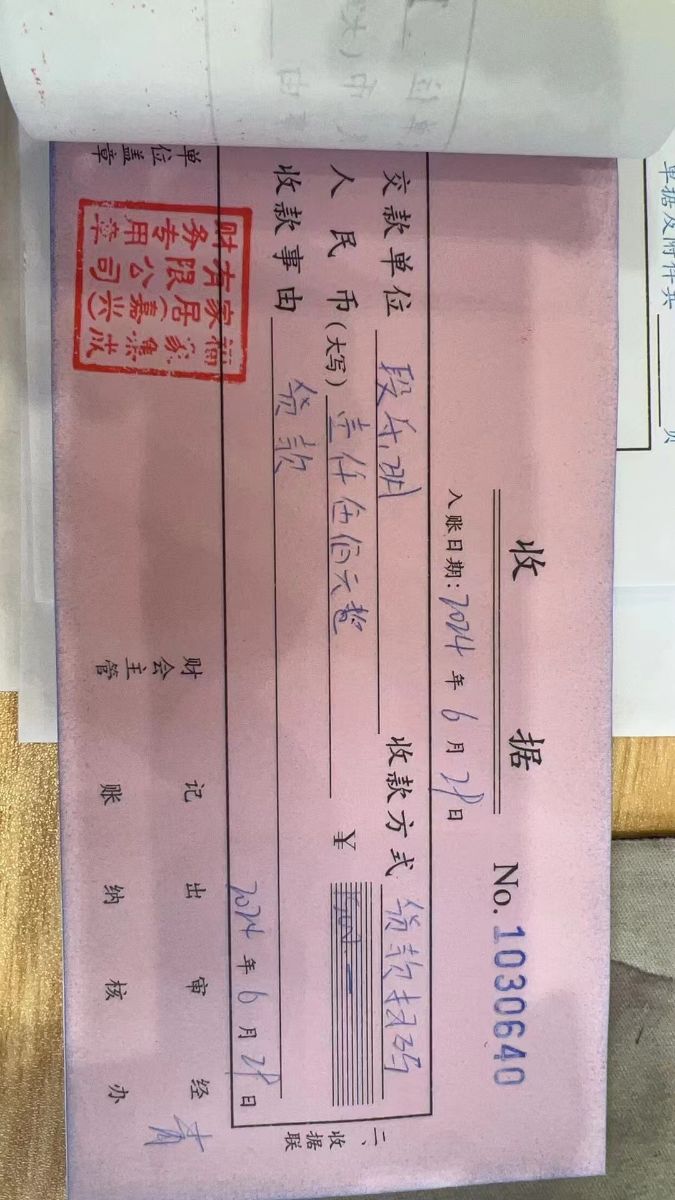 单据及附件共 页
收 据 No.1030640
入账日期：2024 年 6 月 28 日
交款单位 段 明 收款方式 货款扫码
人民币（大写） 壹仟伍佰元整 ¥ 1500.-
收款事由 货款
2024 年 6 月 28 日
二、收据联
单位盖章 财会主管 记账 出纳 审核 经办
福家集成
家居（嘉兴）
有限公司
财务专用章